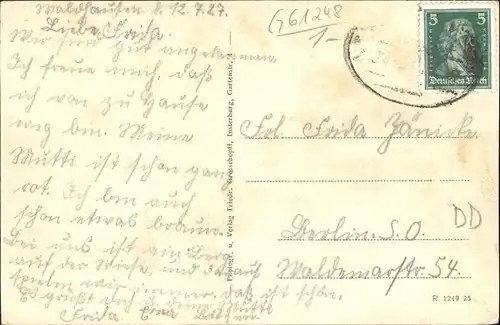 Waldhausen d. 12.7.27.
Liebe Frida.
Wir sind gut angekommen.
Ich freue mich, daß
ich von zu Hause
weg bin. Meine
Mutti ist schon ganz
rot. Ich bin auch
schon etwas braun.
Bei uns ist ein Berg
auf der Wiese, und da
spielen wir immer. daß ist schön.
Es grüßt Dich u. deine Mutti
Frida
G61248
1-
5 5
Deutsches Reich
Frl. Frida Zänicke.
Berlin. S. O.
Waldemarstr. 54.
DD
R 1249 25
Photogr. u. Verlag Friedr. Grunschopff, Insterburg, Gartenstr.